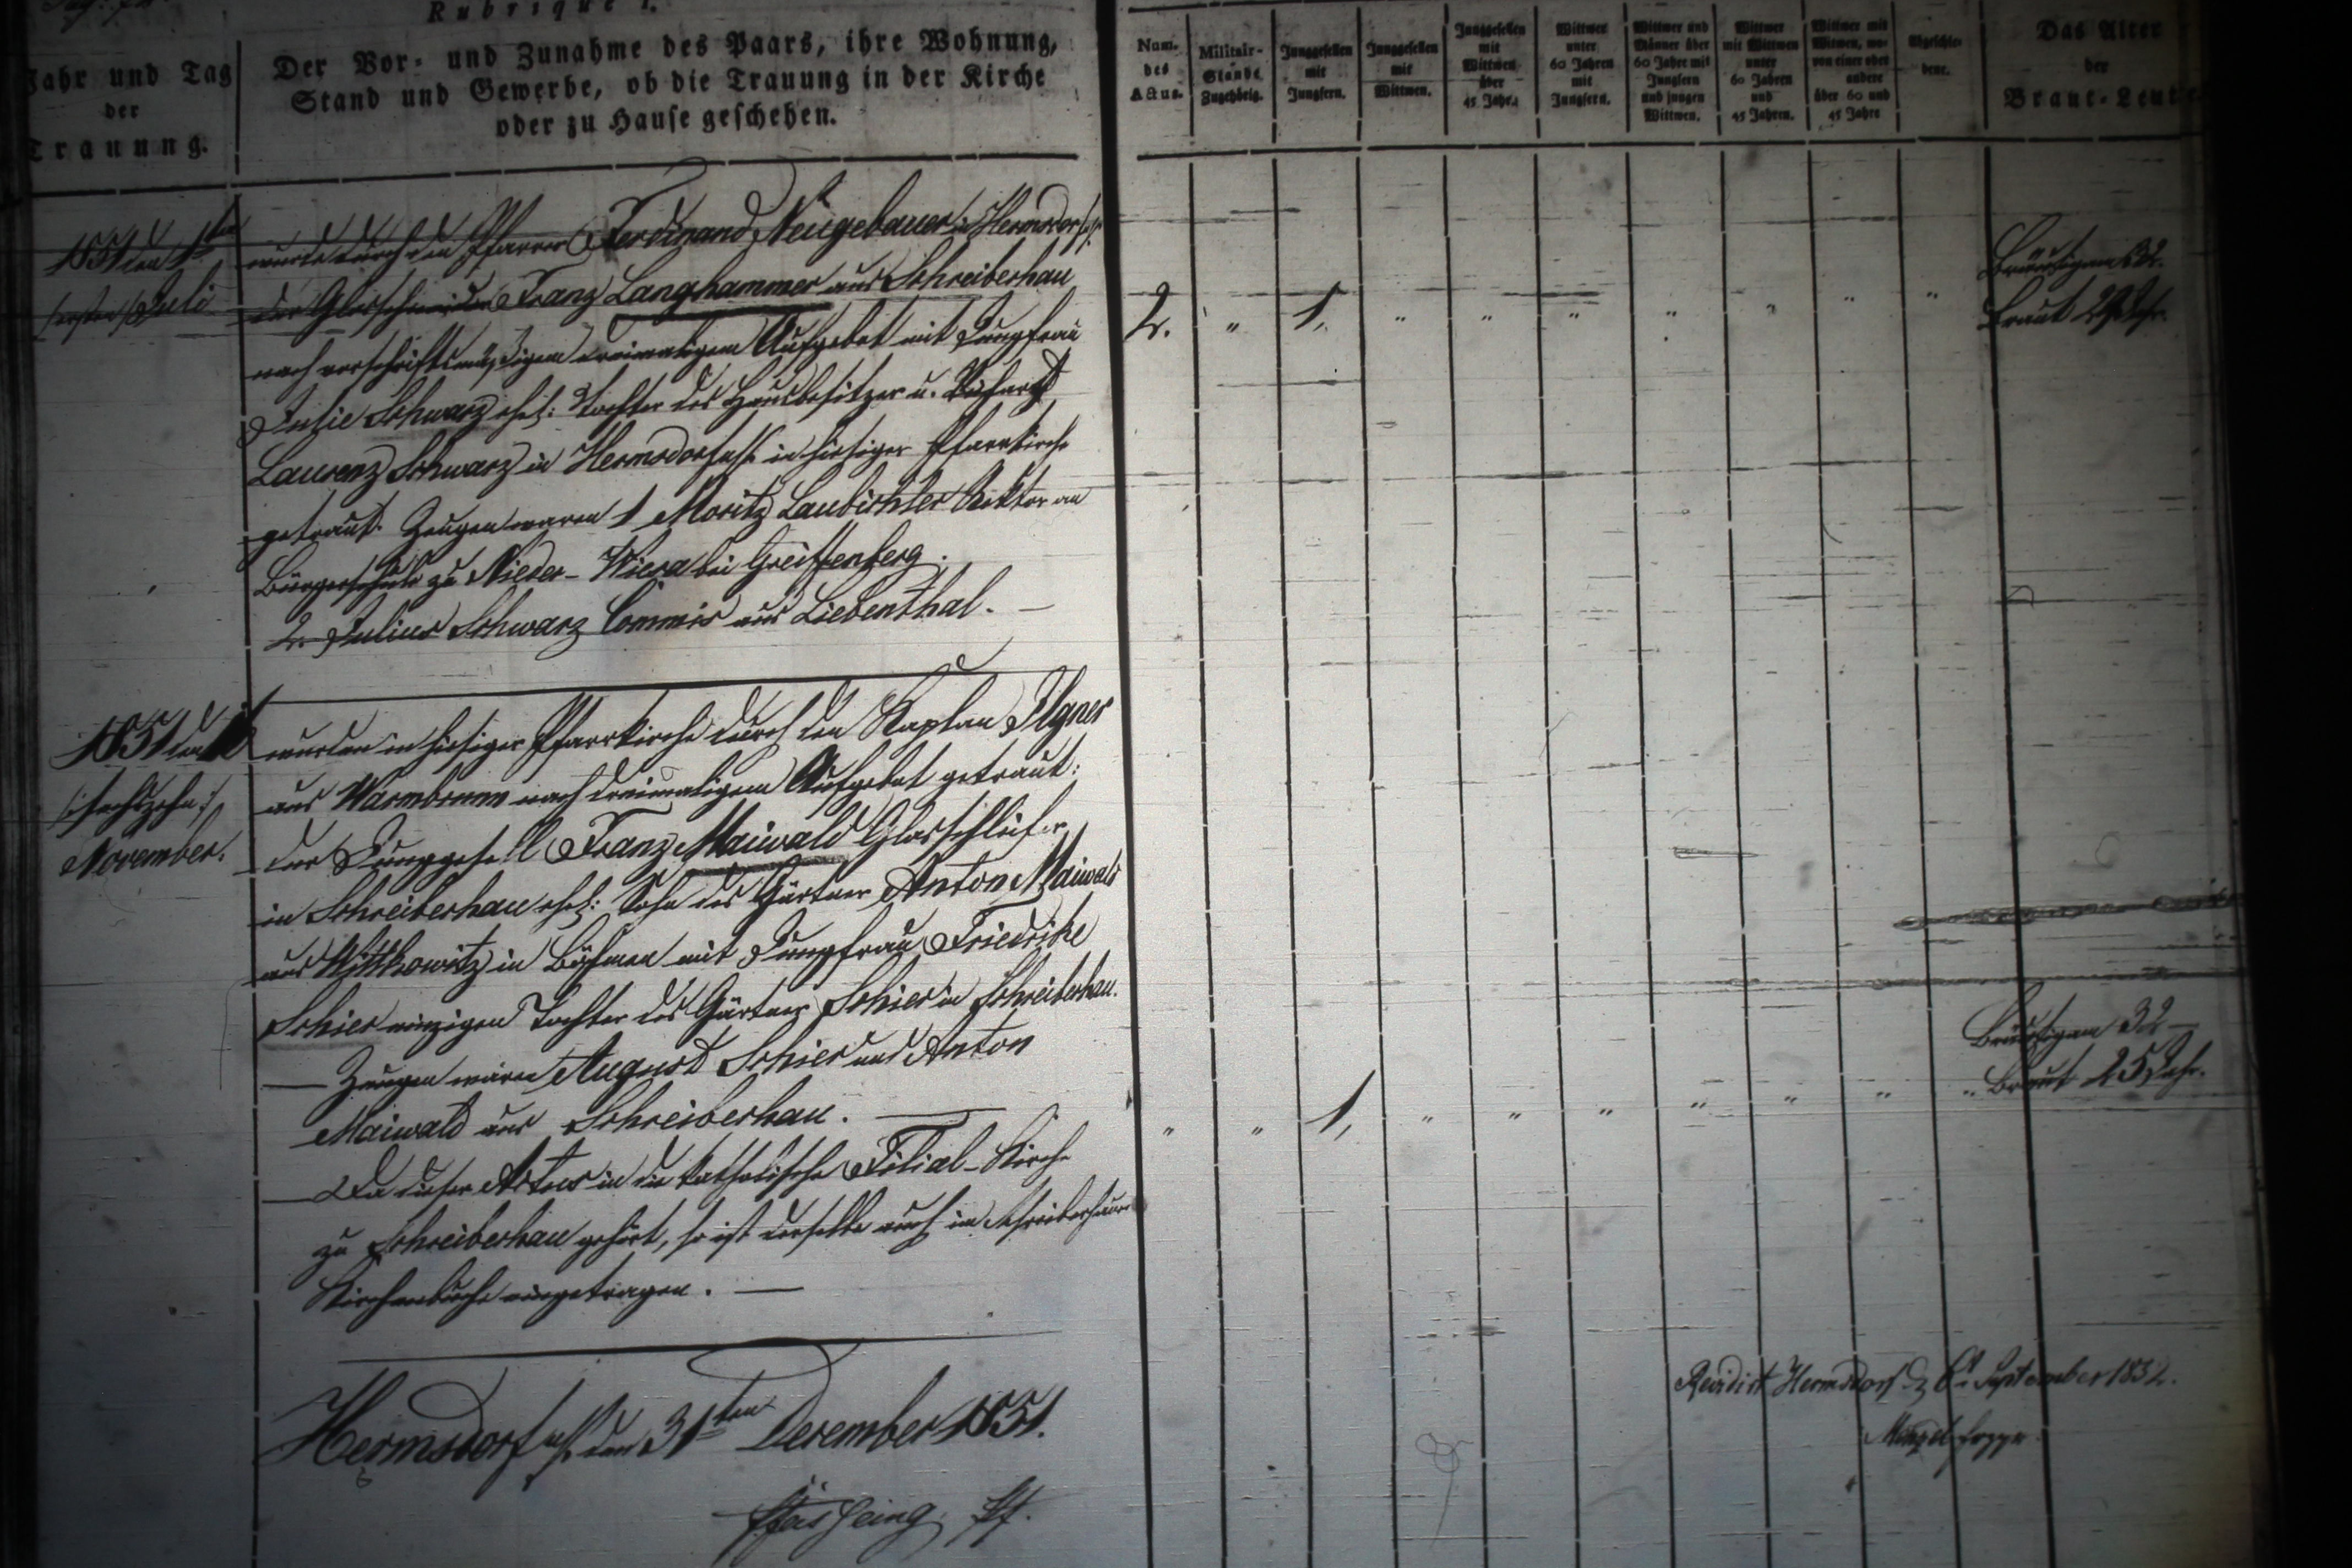 Rubrique I.
Jahr und Tag
der
Trauung.
Der Vor- und Zunahme des Paars, ihre Wohnung,
Stand und Gewerbe, ob die Trauung in der Kirche
oder zu Hause geschehen.
Num.
des
Actus.
Militair-
Stande
Zugehörig.
Junggesellen
mit
Jungfern.
Junggesellen
mit
Wittwen.
Junggesellen
mit
Wittwen
über
45 Jahr.
Wittwer
unter
60 Jahren
mit
Jungfern.
Wittwer und
Männer über
60 Jahre mit
Jungfern
und jungen
Wittwen.
Wittwer
mit Wittwen
unter
60 Jahren
und
45 Jahren.
Wittwer mit
Witwen, wo-
von einer oder
andere
über 60 und
45 Jahre
Abgeschie-
dene.
Das Alter
der
Braut-Leute.
1851 den 1ten
/:ersten:/ Juli
wurde durch den Pfarrer Ferdinand Neugebauer in Hermsdorf
der Glasschneider Franz Langhammer aus Schreiberhau
nach vorschriftsmäßigem dreimaligem Aufgebot mit Jungfrau
Julie Schwarz ehel: Tochter des Hausbesitzer u.
Laurenz Schwarz in Hermsdorf in hiesiger Pfarrkirche
getraut. Zeugen waren 1 Moritz Laubichler Rektor an
Bürgerschule zu Nieder-Wiesa bei Greiffenberg.
2. Julius Schwarz Commis aus Liebenthal. —
2. " 1, " " " " " " "
Bräutigam 32.
Braut 29 Jhr.
1851 den
/:sechszehn:/
November.
wurden in hiesiger Pfarrkirche durch den Kaplan Ilgner
aus Warmbrunn nach dreimaligem Aufgebot getraut:
der Junggesell Franz Maiwald Glasschleifer
in Schreiberhau ehel: Sohn des Gärtner Anton Maiwald
aus Wittkowitz in Böhmen mit Jungfrau Friedrike
Schier einzigen Tochter des Gärtners Schier in Schreiberhau.
— Zeugen waren August Schier und Anton
Maiwald aus Schreiberhau. —
— Da dieser Actus in die katholische Filial-Kirche
zu Schreiberhau gehört, so ist derselbe auch im Schreiberhauer
Kirchenbuche eingetragen. —
" " 1, " " " " " " "
Bräutigam 32 —
Braut 25 Jahr.
Hermsdorf den 31ten December 1851.
Pf.
Revidirt Hermsdorf d. 6t September 1852.
Menzel